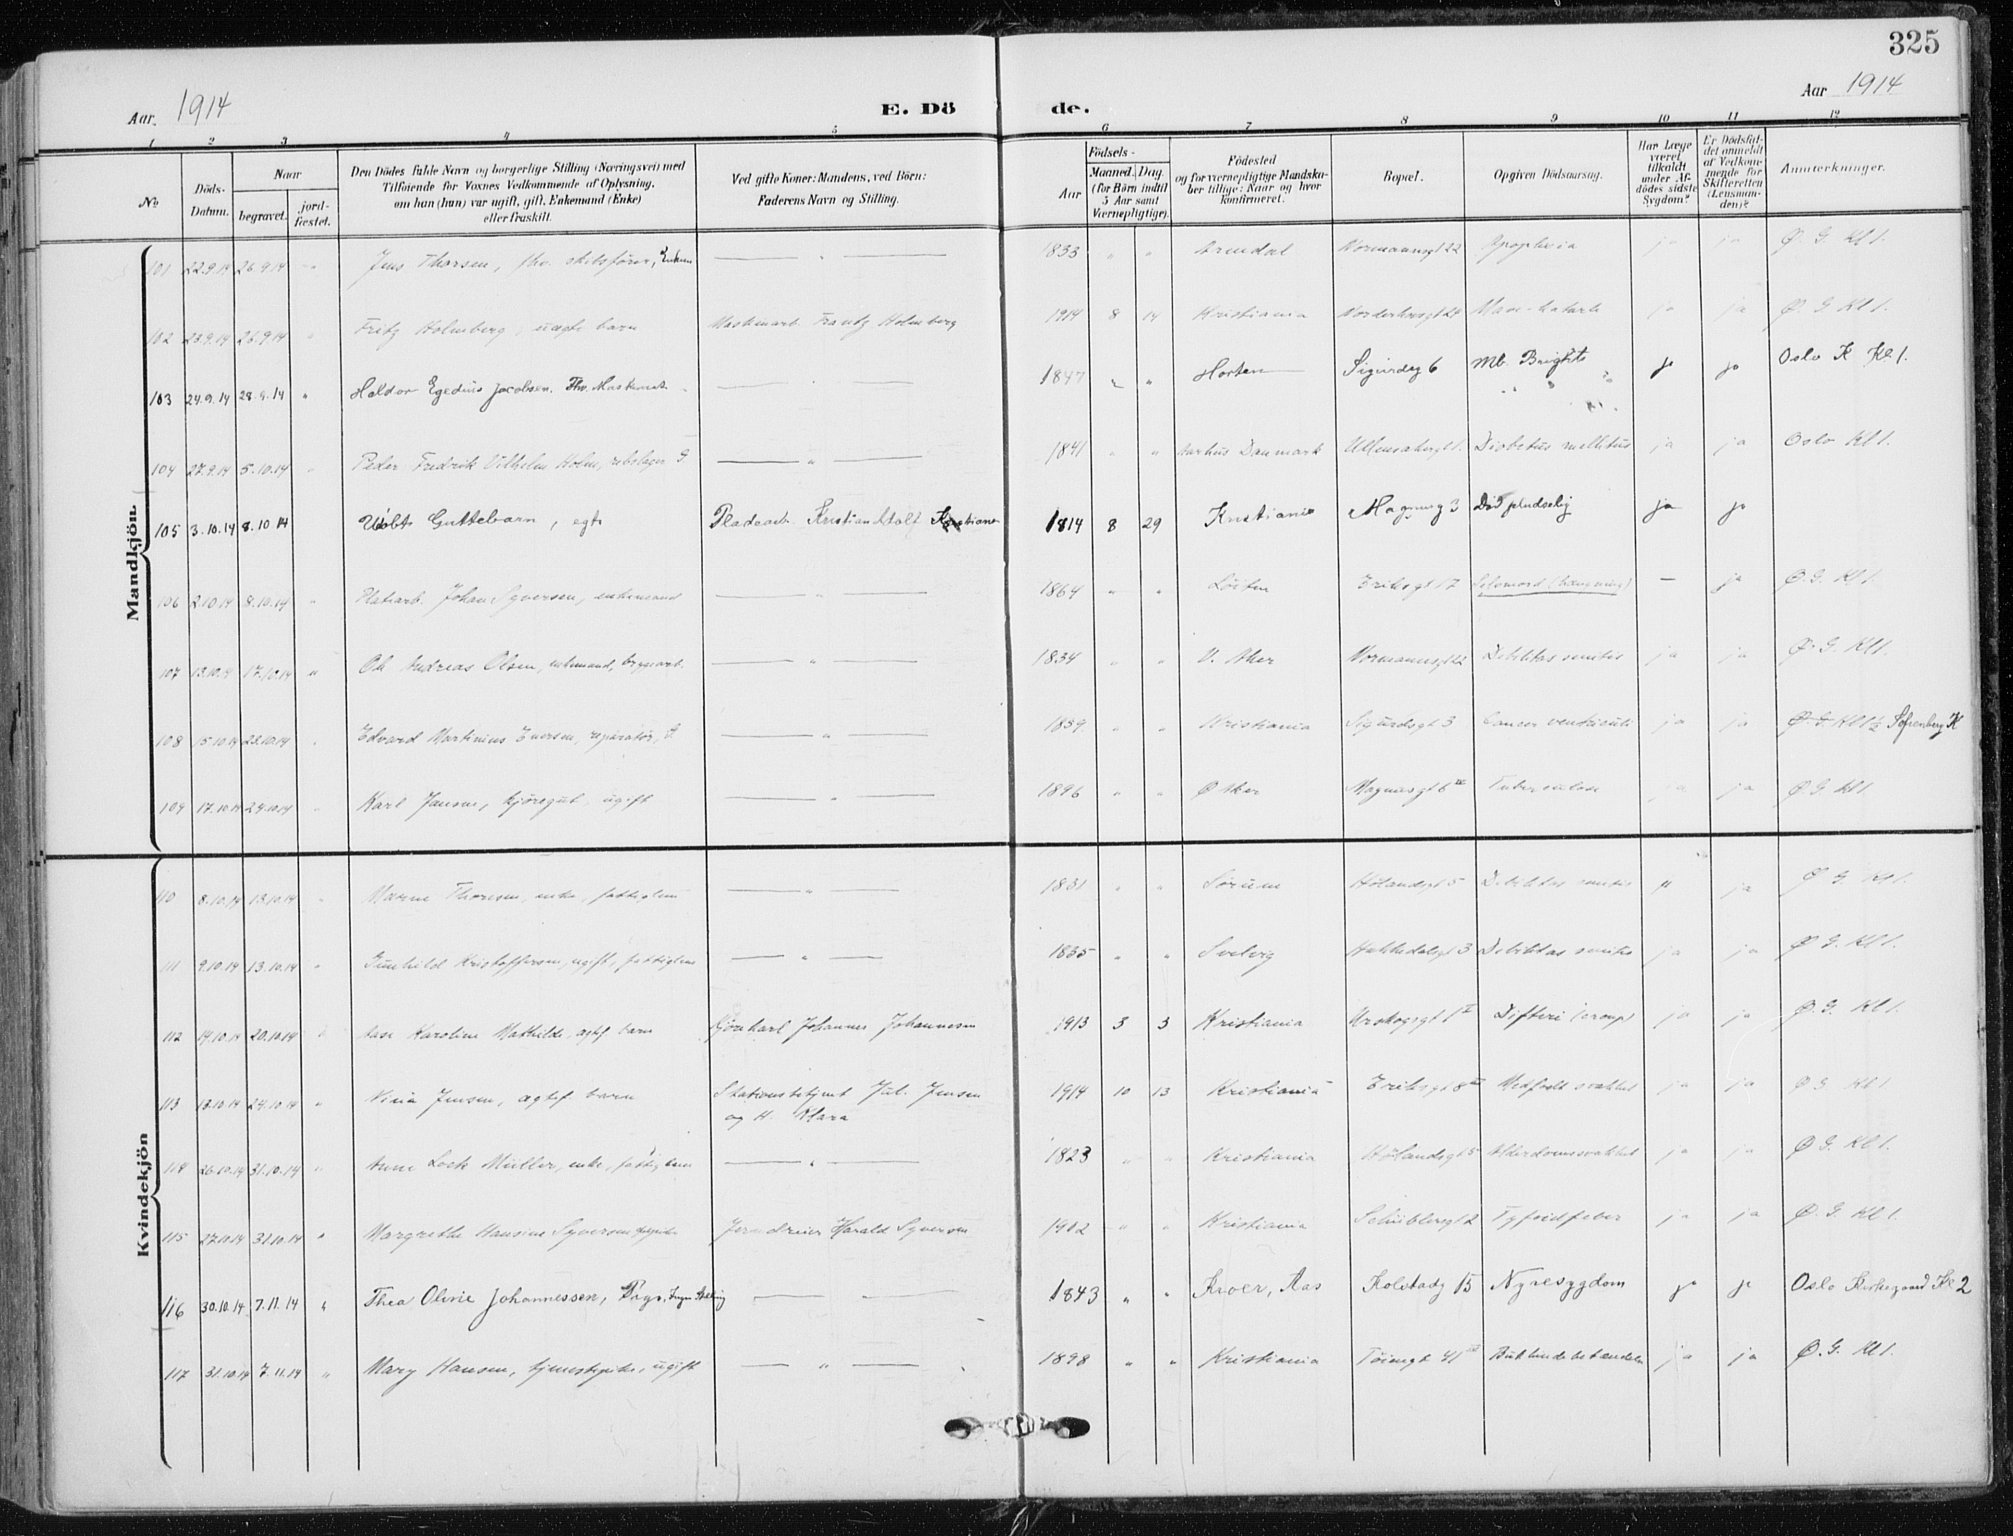 325
Aar 1914
E. Dö de.
Aar 1914
1 2 3 4 5 6 7 8 9 10 11 12
No
Döds-Datum.
Naar
begravet.
jord-fæstet.
Den Dödes fulde Navn og borgerlige Stilling (Næringsvei) med
Tilföiende for Voxnes Vedkommende af Oplysning,
om han (hun) var ugift, gift, Enkemand (Enke)
eller fraskilt.
Ved gifte Koner: Mandens, ved Börn:
Faderens Navn og Stilling.
Födsels-
Aar
Maaned. Dag.
(for Börn indtil
5 Aar samt
Værnepligtige).
Födested
og for værnepligtige Mandska-
ber tillige: Naar og hvor
konfirmeret.
Bopæl.
Opgiven Dödsaarsag.
Har Læge
været
tilkaldt
under Af-
dödes sidste
Sygdom?
Er Dödsfal-
det anmeldt
af Vedkom-
mende for
Skifteretten
(Lensman-
den)?
Anmærkninger.
Mandkjön.
101 22.9.14 26.9.14 Jens Thorsen, fhv. skibsfører, Enkem 1833 " " Arendal Normannsgt 22 Apoplexia ja ja Ø. G. Kl 1.
102 23.9.14 26.9.14 " Fritz Holmberg, uægte barn Maskinarb. Frantz Holmberg 1914 8 14 Kristiania Nordenbergt 24 Mave-katarh ja ja Ø. G. Kl 1.
103 24.9.14 28.9.14 " Haldor Egedius Jacobsen. Fhv. Maskinist 1847 " " Horten Sigurdsg 6 Mb. Brightii ja ja Oslo K Kl 1.
104 27.9.14 5.10.14 " Peder Fredrik Vilhelm Holm, rebslager G. " 1841 " " Aarhus Danmark Ullensakergt 1. Diabetus mellitus ja ja Oslo Kl 1.
105 3.10.14 8.10.14 Udøbt Guttebarn, egte Pladearb. Kristian Adolf 1914 8 29 Kristiania Magnusg 3 Død pludselig ja ja
106 2.10.14 8.10.14 " Platarb. Johan Syversen, enkemand " 1864 " " Løiten Eriksgt 17 Selvmord (hængning) — ja Ø. G. Kl 1.
107 13.10.14 17.10.14 " Ole Andreas Olsen, enkemand, bryggearb. " 1834 " " V. Aker Normannsgt 22 Debilitas senilis ja ja Ø. G. Kl 1.
108 15.10.14 23.10.14 " Edvard Martinius Evensen, reparatør, G " 1859 " " Kristiania Sigurdsgt 3 Cancer ventriculi ja ja Ø. G. Kl 1 Sofienberg K
109 17.10.14 24.10.14 " Karl Jansen, kjøregut. ugift " 1896 " " Ø Aker Magnusgt 6 III Tuberculose ja ja Ø. G. Kl 1.
Kvindekjön
110 8.10.14 13.10.14 " Maren Thoresen, enke, fattiglem " 1831 " " Sørum Hølandsgt 5 Debilitas senilis ja ja Ø G. Kl 1.
111 9.10.14 13.10.14 " Gunhild Kristoffersen, ugift, fattiglem " 1835 " " Svelvig Hakkedalsgt 3 Debilitas senilis ja ja Ø G. Kl 1.
112 14.10.14 20.10.14 " Aase Karoline Mathilde, ægtef. barn Kjørekarl Johannes Johannesen 1913 3 3 Kristiania Urskogsgt 1 II Difteri (croup) ja ja Ø. G. Kl 1.
113 13.10.14 24.10.14 " Nina Jensen, ægtef. barn Stationsbetjent Jul. Jensen 1914 10 13 Kristiania Eriksgt 8 III Medfødt svakhet ja ja Ø G. Kl 1.
og H. Klara
114 26.10.14 31.10.14 " Anne Lock Müller, enke, fattiglem " 1823 " " Kristiania Hølandsgt 5 Alderdomssvakhet ja ja Ø G. Kl 1.
115 27.10.14 31.10.14 " Margrethe Hansine Syversen Jerndreier Harald Syversen 1902 " " Kristiania Schüblersgt 2 Tyfoidfeber ja ja Ø. G. Kl 1.
116 30.10.14 7.11.14 " Thea Olivie Johannessen, Pige, Ingen Stilling 1843 " " Kroer, Aas Kolstadg 15 Nyresygdom ja ja Oslo Kirkegaard Kl 2
117 31.10.14 7.11.14 " Mary Hansen, tjenestepike, ugift " 1898 " " Kristiania Tøiengt 41 III Bukhindebetændelse ja ja Ø. G. Kl 1.